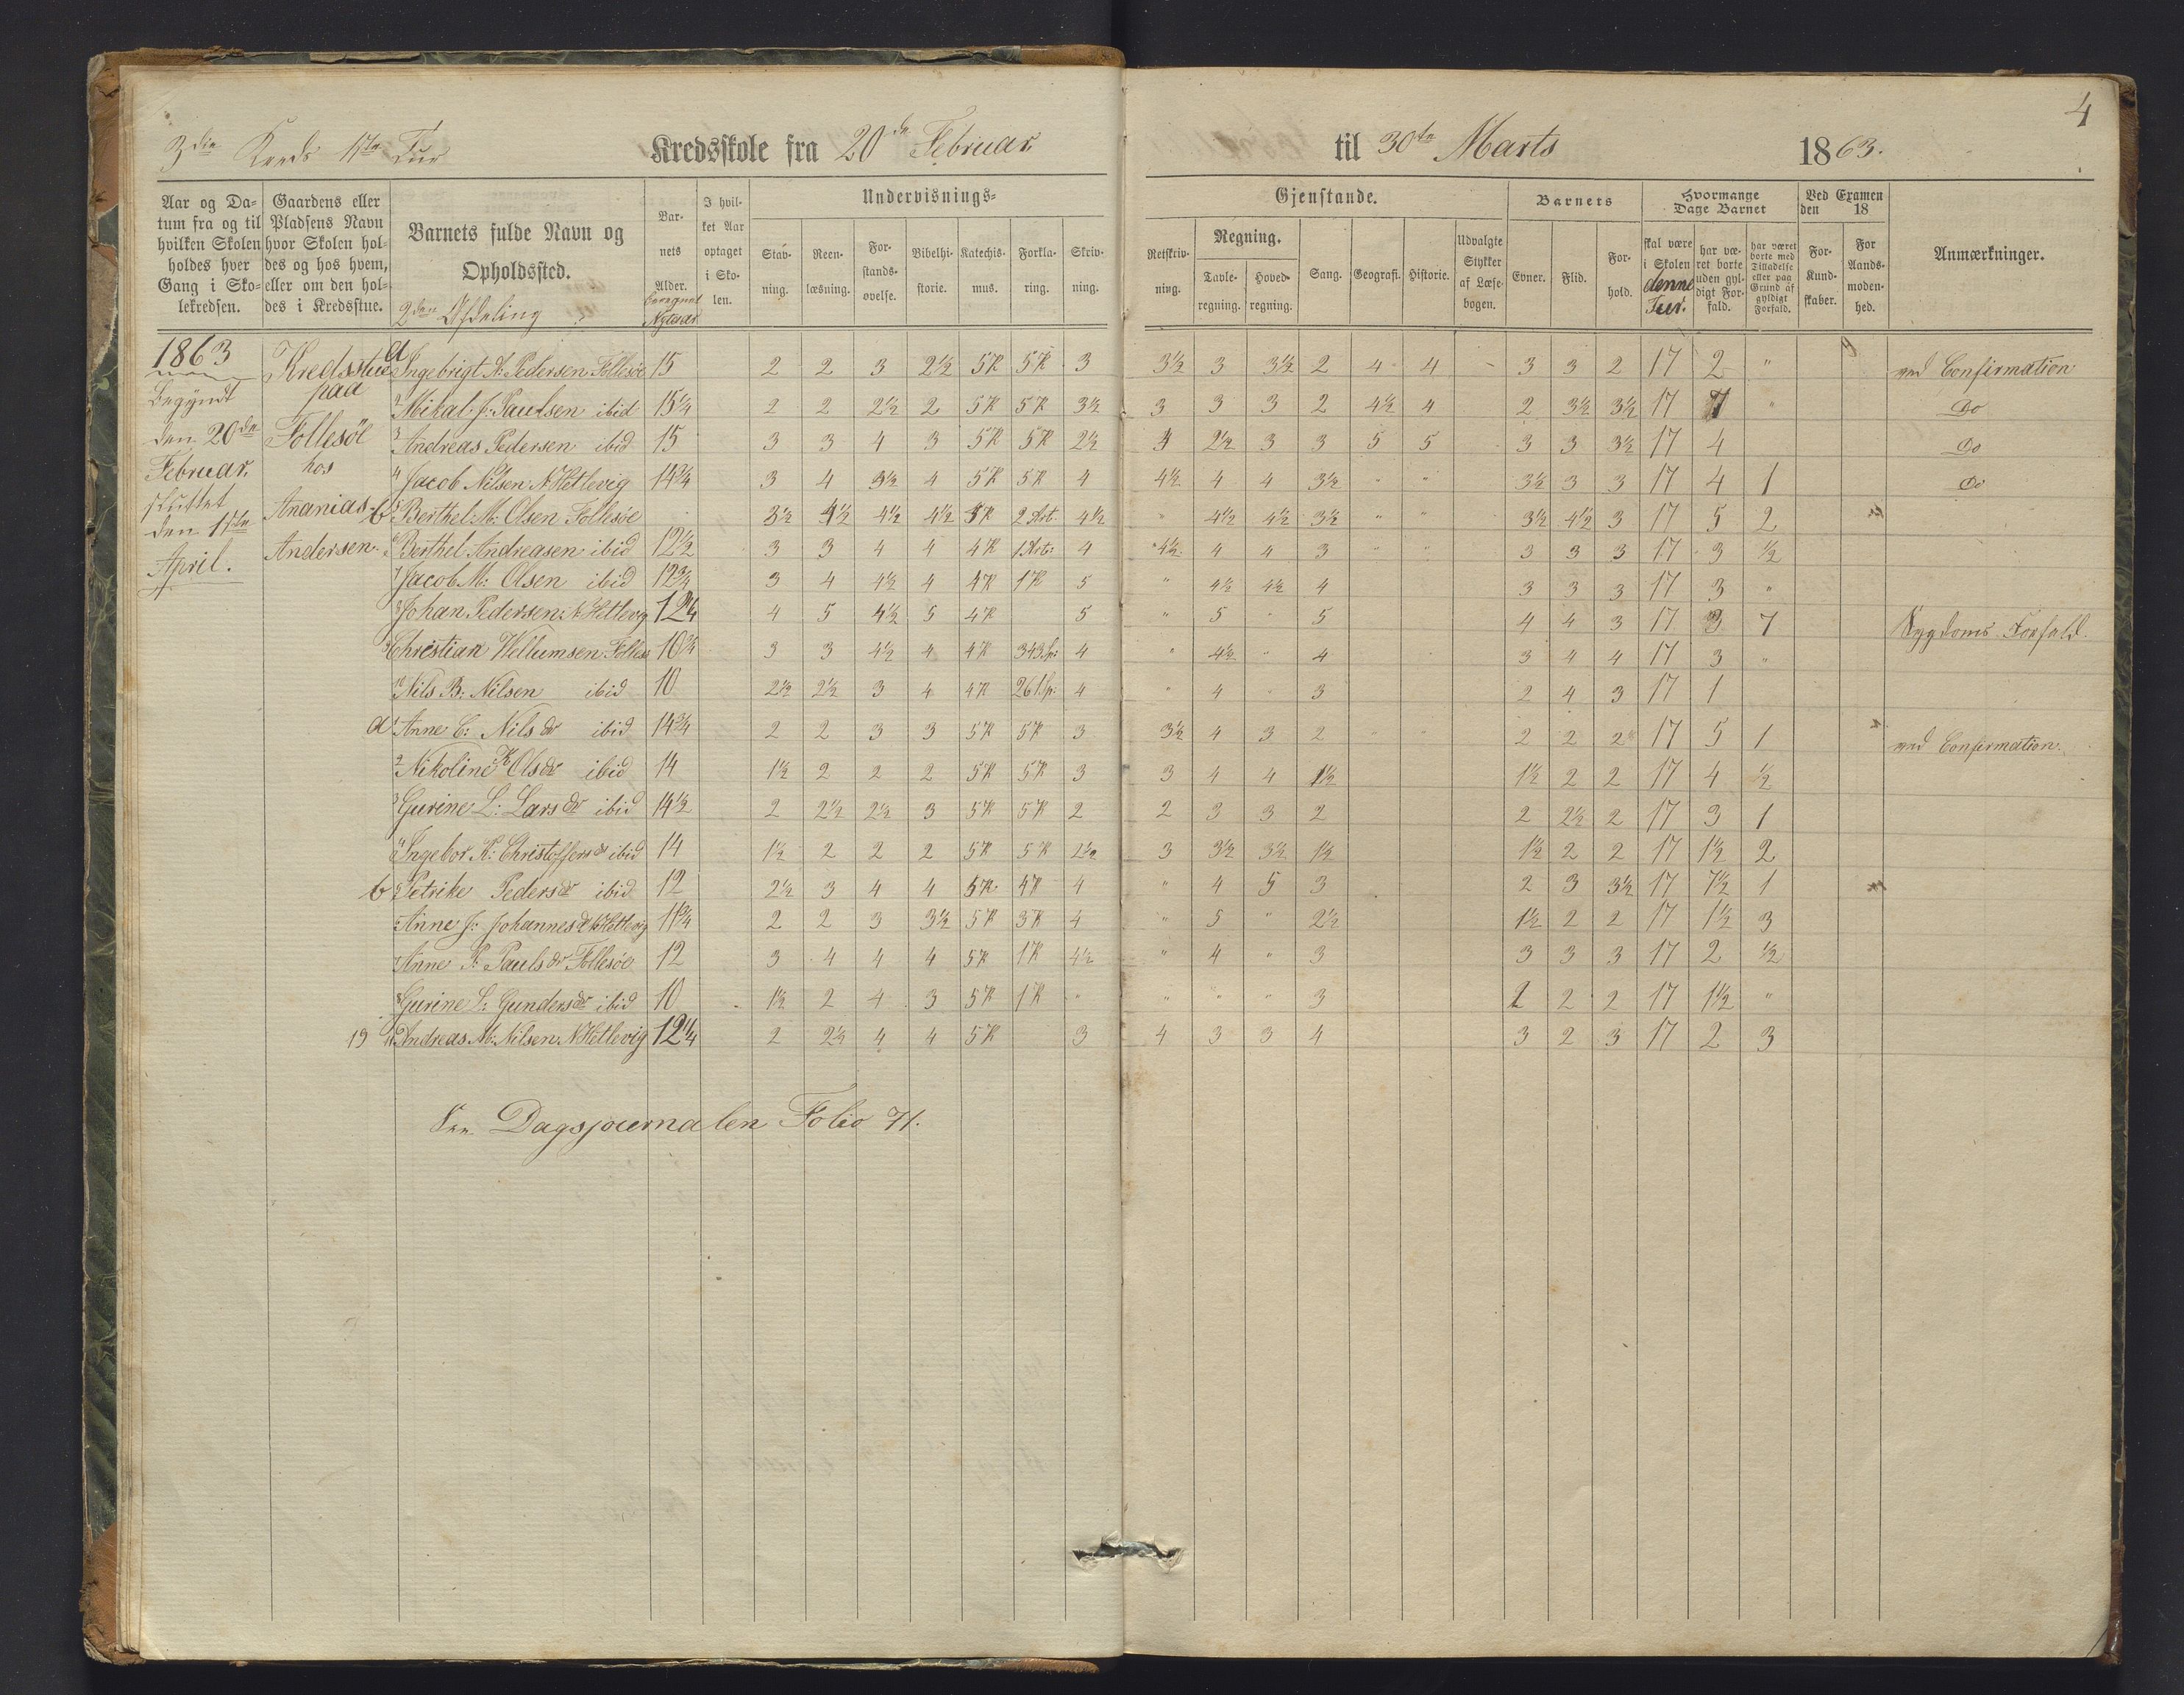 3die Kreds 1ste Tur Kredsskole fra 20de Februar til 30te Marts 1863. 4
Aar og Datum fra og til hvilken Skolen holdes hver Gang i Skolekredsen.
Gaardens eller Pladsens Navn hvor Skolen holdes og hos hvem, eller om den holdes i Kredsstue.
Barnets fulde Navn og Opholdssted.
2den Afdeling
Barnets Alder.
Nytaar
I hvilket Aar optaget i Skolen.
Undervisnings- Gjenstande.
Stavning. Reenlæsning. Forstandsøvelse. Bibelhistorie. Katechismus. Forklaring. Skrivning.
Retskrivning. Regning. Tavleregning. Hovedregning. Sang. Geografi. Historie. Udvalgte Stykker af Læsebogen.
Barnets Evner. Flid. Forhold.
Hvormange Dage Barnet
skal være i Skolen denne Tur.
har været borte uden gyldigt Forfald.
har været borte med Tilladelse eller paa Grund af gyldigt Forfald.
Ved Examen den 18
For Kundskaber. For Aandsmodenhed.
Anmærkninger.
1863
Begyndt
den 20de
Februar.
sluttet
den 1ste
April.
Kredsstue
paa
Follesöe
hos
Ananias
Andersen.
a Ingebrigt A. Pedersen Follesöe 15 2 2 3 2½ 5K 5K 3 3½ 3 3½ 2 4 4 - 3 3 2 17 2 " ved Confirmation
2 Mikal J: Paulsen ibid 15¼ 2 2 2½ 2 5K 5K 3½ 3 3 3 2 4½ 4 2 3½ 3½ 17 7 " Do
3 Andreas Pedersen ibid 15 3 3 4 3 5K 5K 2½ 3 2½ 3 3 5 5 3 3 3½ 17 4 Do
4 Jacob Nilsen N Hetlevig 14¾ 3 4 3½ 4 5K 5K 4 4½ 4 4 3½ " " 3½ 3 3 17 4 1 Do
b 5 Berthel M: Olsen Follesöe 3½ 4½ 4½ 4½ 5K 2 Art. 4½ " 4½ 4½ 3½ " " 3½ 4½ 3 17 5 2
6 Berthel Andreasen ibid 12½ 3 3 4 4 4K 1 Art: 4 4½ 4 4 3 " " 3 3 3 17 3 ½
7 Jacob M: Olsen ibid 12¾ 3 4 4½ 4 4K 1K 5 " 4½ 4½ 4 3 3 3 17 3 "
8 Johan Pedersen N Hetlevig 12¼ 4 5 4½ 5 4K 5 " 5 " 5 4 4 3 17 3 7 Sygdoms Forfald.
9 Christian Vellumsen Follesö 10¾ 3 3 4½ 4 4K 343Sp: 4 " 4½ " 4 3 4 4 17 3 "
10 Nils B: Nilsen ibid 10 2½ 2½ 3 4 4K 261Sp: 4 " 4 " 3 2 4 3 17 1
a 1 Anne C: Nilsdr ibid 14¾ 2 2 3 3 5K 5K 3 3½ 4 3 2 2 2 2 17 5 1 ved Confirmation.
2 Nikoline K Olsdr ibid 14 1½ 2 2 2 5K 5K 3 3 4 4 1½ 1½ 2 2 17 4 ½
3 Gurine L: Larsdr ibid 14½ 2 2½ 2½ 3 5K 5K 2 2 3 3 2 2 2½ 2 17 3 1
4 Ingebor K: Christoffersdr ibid 14 1½ 2 2 2 5K 5K 2½ 3 3½ 3½ 1½ 1½ 2 2 17 1½ 2
b 5 Petrike Pedersdr ibid 12 2½ 3 4 4 5K 4K 4 " 4 5 3 2 3 3½ 17 7½ 1
6 Anne J: Johannesdr N Hetlevig 11¾ 2 2 3 3½ 5K 3K 4 " 5 " 2½ 1½ 2 2 17 1½ 3
7 Anne P. Paulsdr Follesöe 12 3 4 4 4 5K 1K 4½ " 4 " 3 3 3 3 17 2 ½
8 Gurine L: Gundersdr ibid 10 1½ 2 4 3 5K 1K " " " " 3 1 2 2 17 1½ "
19 11 Andreas M: Nilsen N Hetlevig 12¼ 2 2½ 4 4 5K 3 4 3 3 4 3 2 3 17 2 3
See Dagsjournalen Folio 71.